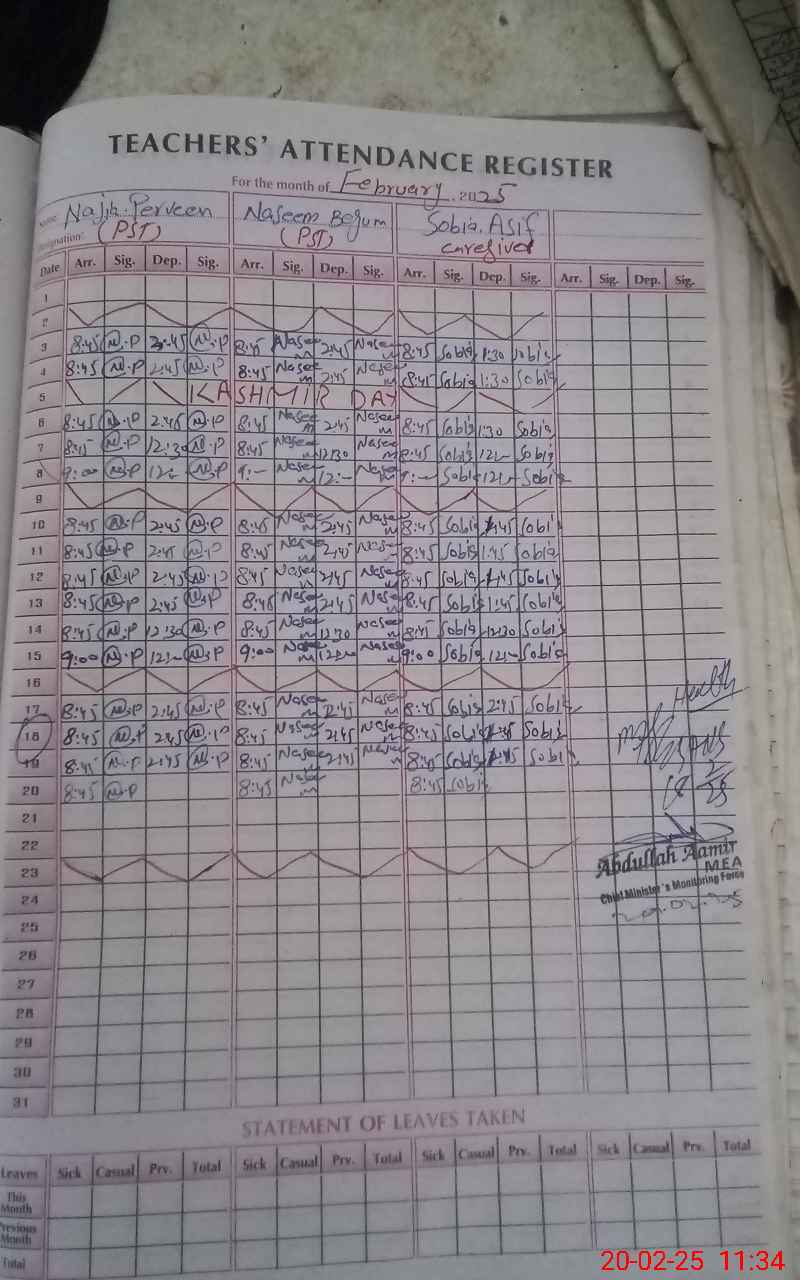 TEACHERS' ATTENDANCE REGISTER
For the month of February. 2025
Name: Najib. Perveen Naseem Begum Sobia. Asif
Designation: (PST) (PST) caregiver
Date Arr. Sig. Dep. Sig. Arr. Sig. Dep. Sig. Arr. Sig. Dep. Sig. Arr. Sig. Dep. Sig.
1
2
3 8:45 N.P 2:45 N.P 8:45 Naseem 2:45 Naseem 8:45 Sobia 1:30 Sobia
4 8:45 N.P 2:45 N.P 8:45 Naseem 2:45 Naseem 8:45 Sobia 1:30 Sobia
5 KASHMIR DAY
6 8:45 N.P 2:45 N.P 8:45 Naseem 2:45 Naseem 8:45 Sobia 1:30 Sobia
7 8:45 N.P 12:30 N.P 8:45 Naseem 12:30 Naseem 8:45 Sobia 12:- Sobia
8 9:00 N.P 12:- N.P 9:- Naseem 12:- Naseem 9:- Sobia 12:- Sobia
9
10 8:45 N.P 2:45 N.P 8:45 Naseem 2:45 Naseem 8:45 Sobia 1:45 Sobia
11 8:45 N.P 2:45 N.P 8:45 Naseem 2:45 Naseem 8:45 Sobia 1:45 Sobia
12 8:45 N.P 2:45 N.P 8:45 Naseem 2:45 Naseem 8:45 Sobia 1:45 Sobia
13 8:45 N.P 2:45 N.P 8:45 Naseem 2:45 Naseem 8:45 Sobia 1:45 Sobia
14 8:45 N.P 12:30 N.P 8:45 Naseem 12:30 Naseem 8:45 Sobia 12:30 Sobia
15 9:00 N.P 12:- N.P 9:00 Naseem 12:- Naseem 9:00 Sobia 12:- Sobia
16
17 8:45 N.P 2:45 N.P 8:45 Naseem 2:45 Naseem 8:45 Sobia 2:45 Sobia
18 8:45 N.P 2:45 N.P 8:45 Naseem 2:45 Naseem 8:45 Sobia 1:45 Sobia
19 8:45 N.P 2:45 N.P 8:45 Naseem 2:45 Naseem 8:45 Sobia 1:45 Sobia
20 8:45 N.P 8:45 Naseem 8:45 Sobia
21
22
23
24
25
26
27
28
29
30
31
Health
18/2/25
Abdullah Aamir
MEA
Chief Minister's Monitoring Force
20.02.25
STATEMENT OF LEAVES TAKEN
Leaves Sick Casual Prv. Total Sick Casual Prv. Total Sick Casual Prv. Total Sick Casual Prv. Total
This Month
Previous Month
Total
20-02-25 11:34